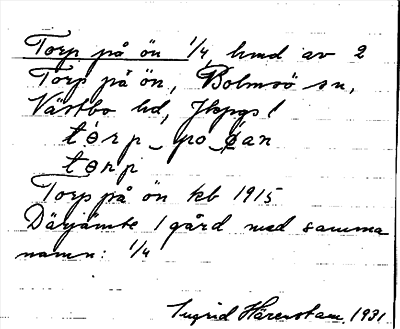 Torp på ön 1/4, hmd av 2
Torp på ön, Bolmsö sn,
Västbo hd, Jkpgs l
tɵrp_po_øan
tɵrp
Torp på ön kb 1915
Därjämte 1 gård med samma
namn: 1/4
Ingrid Härenstam 1931